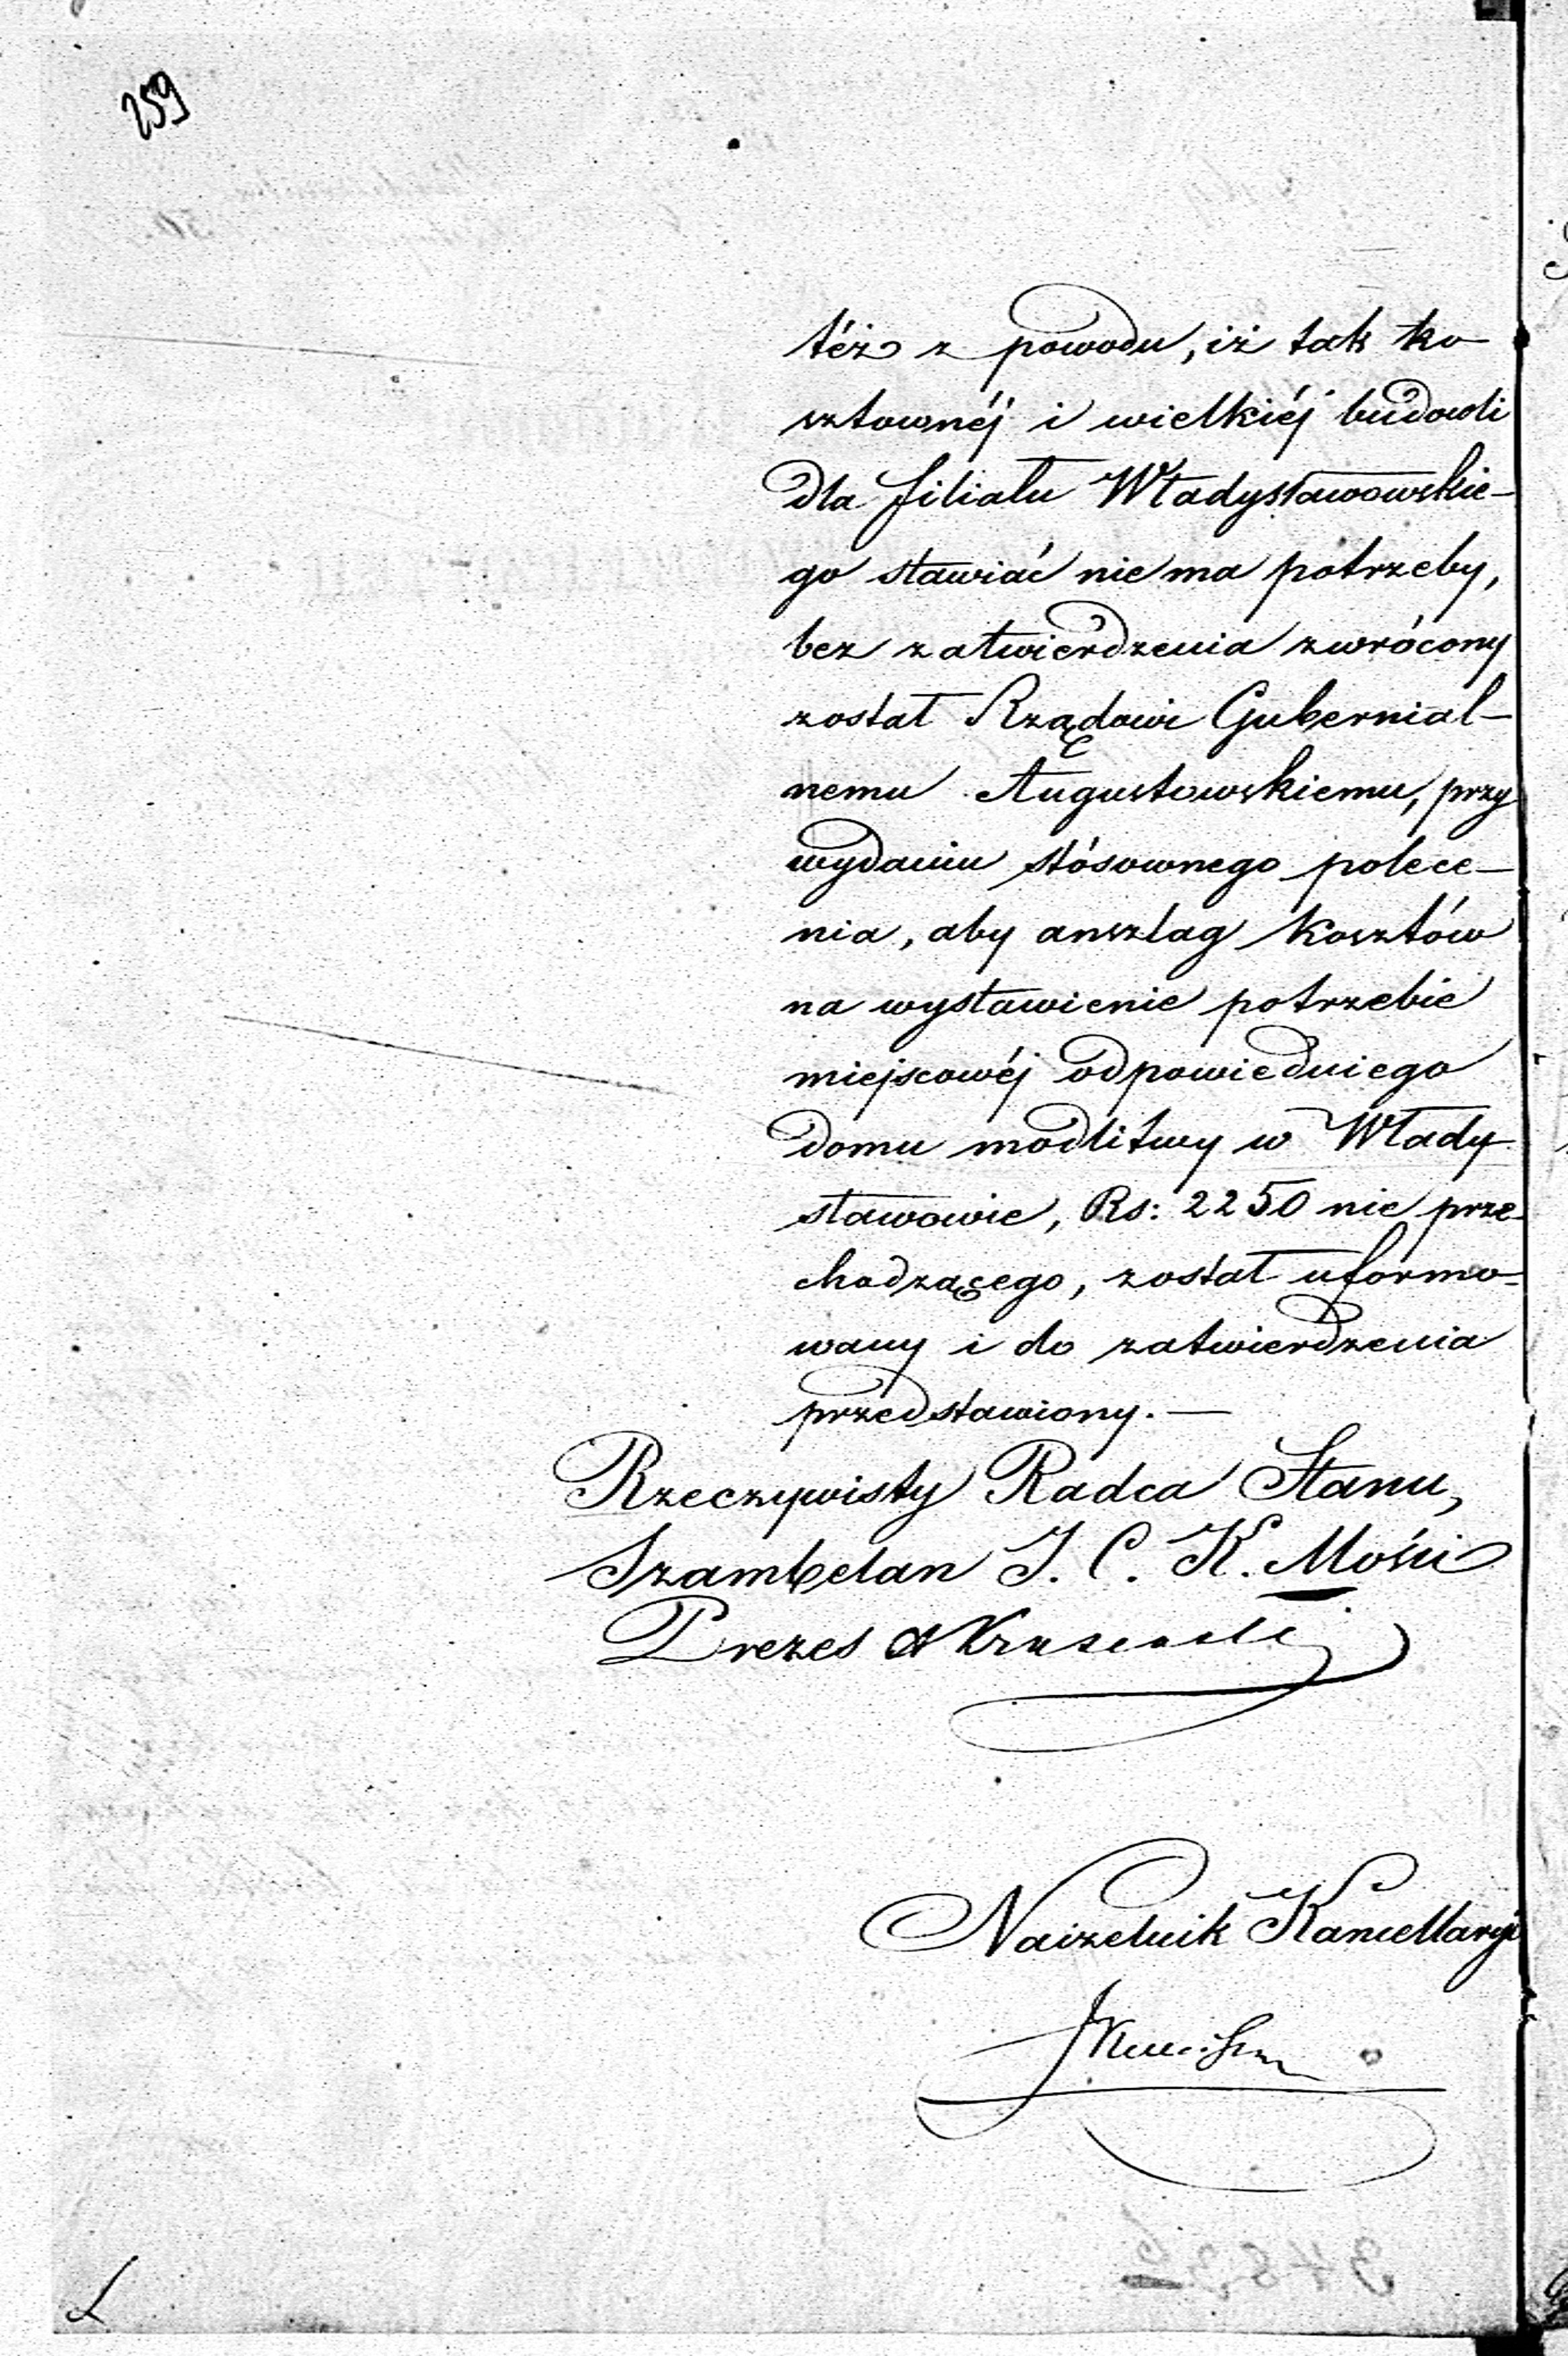 259
téż z powodu, iż tak ko
sztownéj i wielkiéj budowli
dla filiału Władysławowskie-
go stawiać nie ma potrzeby,
bez zatwierdzenia zwrócony
został Rządowi Gubernial-
nemu Augustowskiemu, przy
wydaniu stósownego polece-
nia, aby anszlag kosztów
na wystawienie potrzebie
miejscowéj odpowiedniego
domu modlitwy w Włady
sławowie, Rs: 2250 nie prze-
chodzącego, został uformo-
wany i do zatwierdzenia
przedstawiony. —
Rzeczywisty Radca Stanu,
Szambelan J. C. K. Mości
Prezes
Naczelnik Kancellaryi